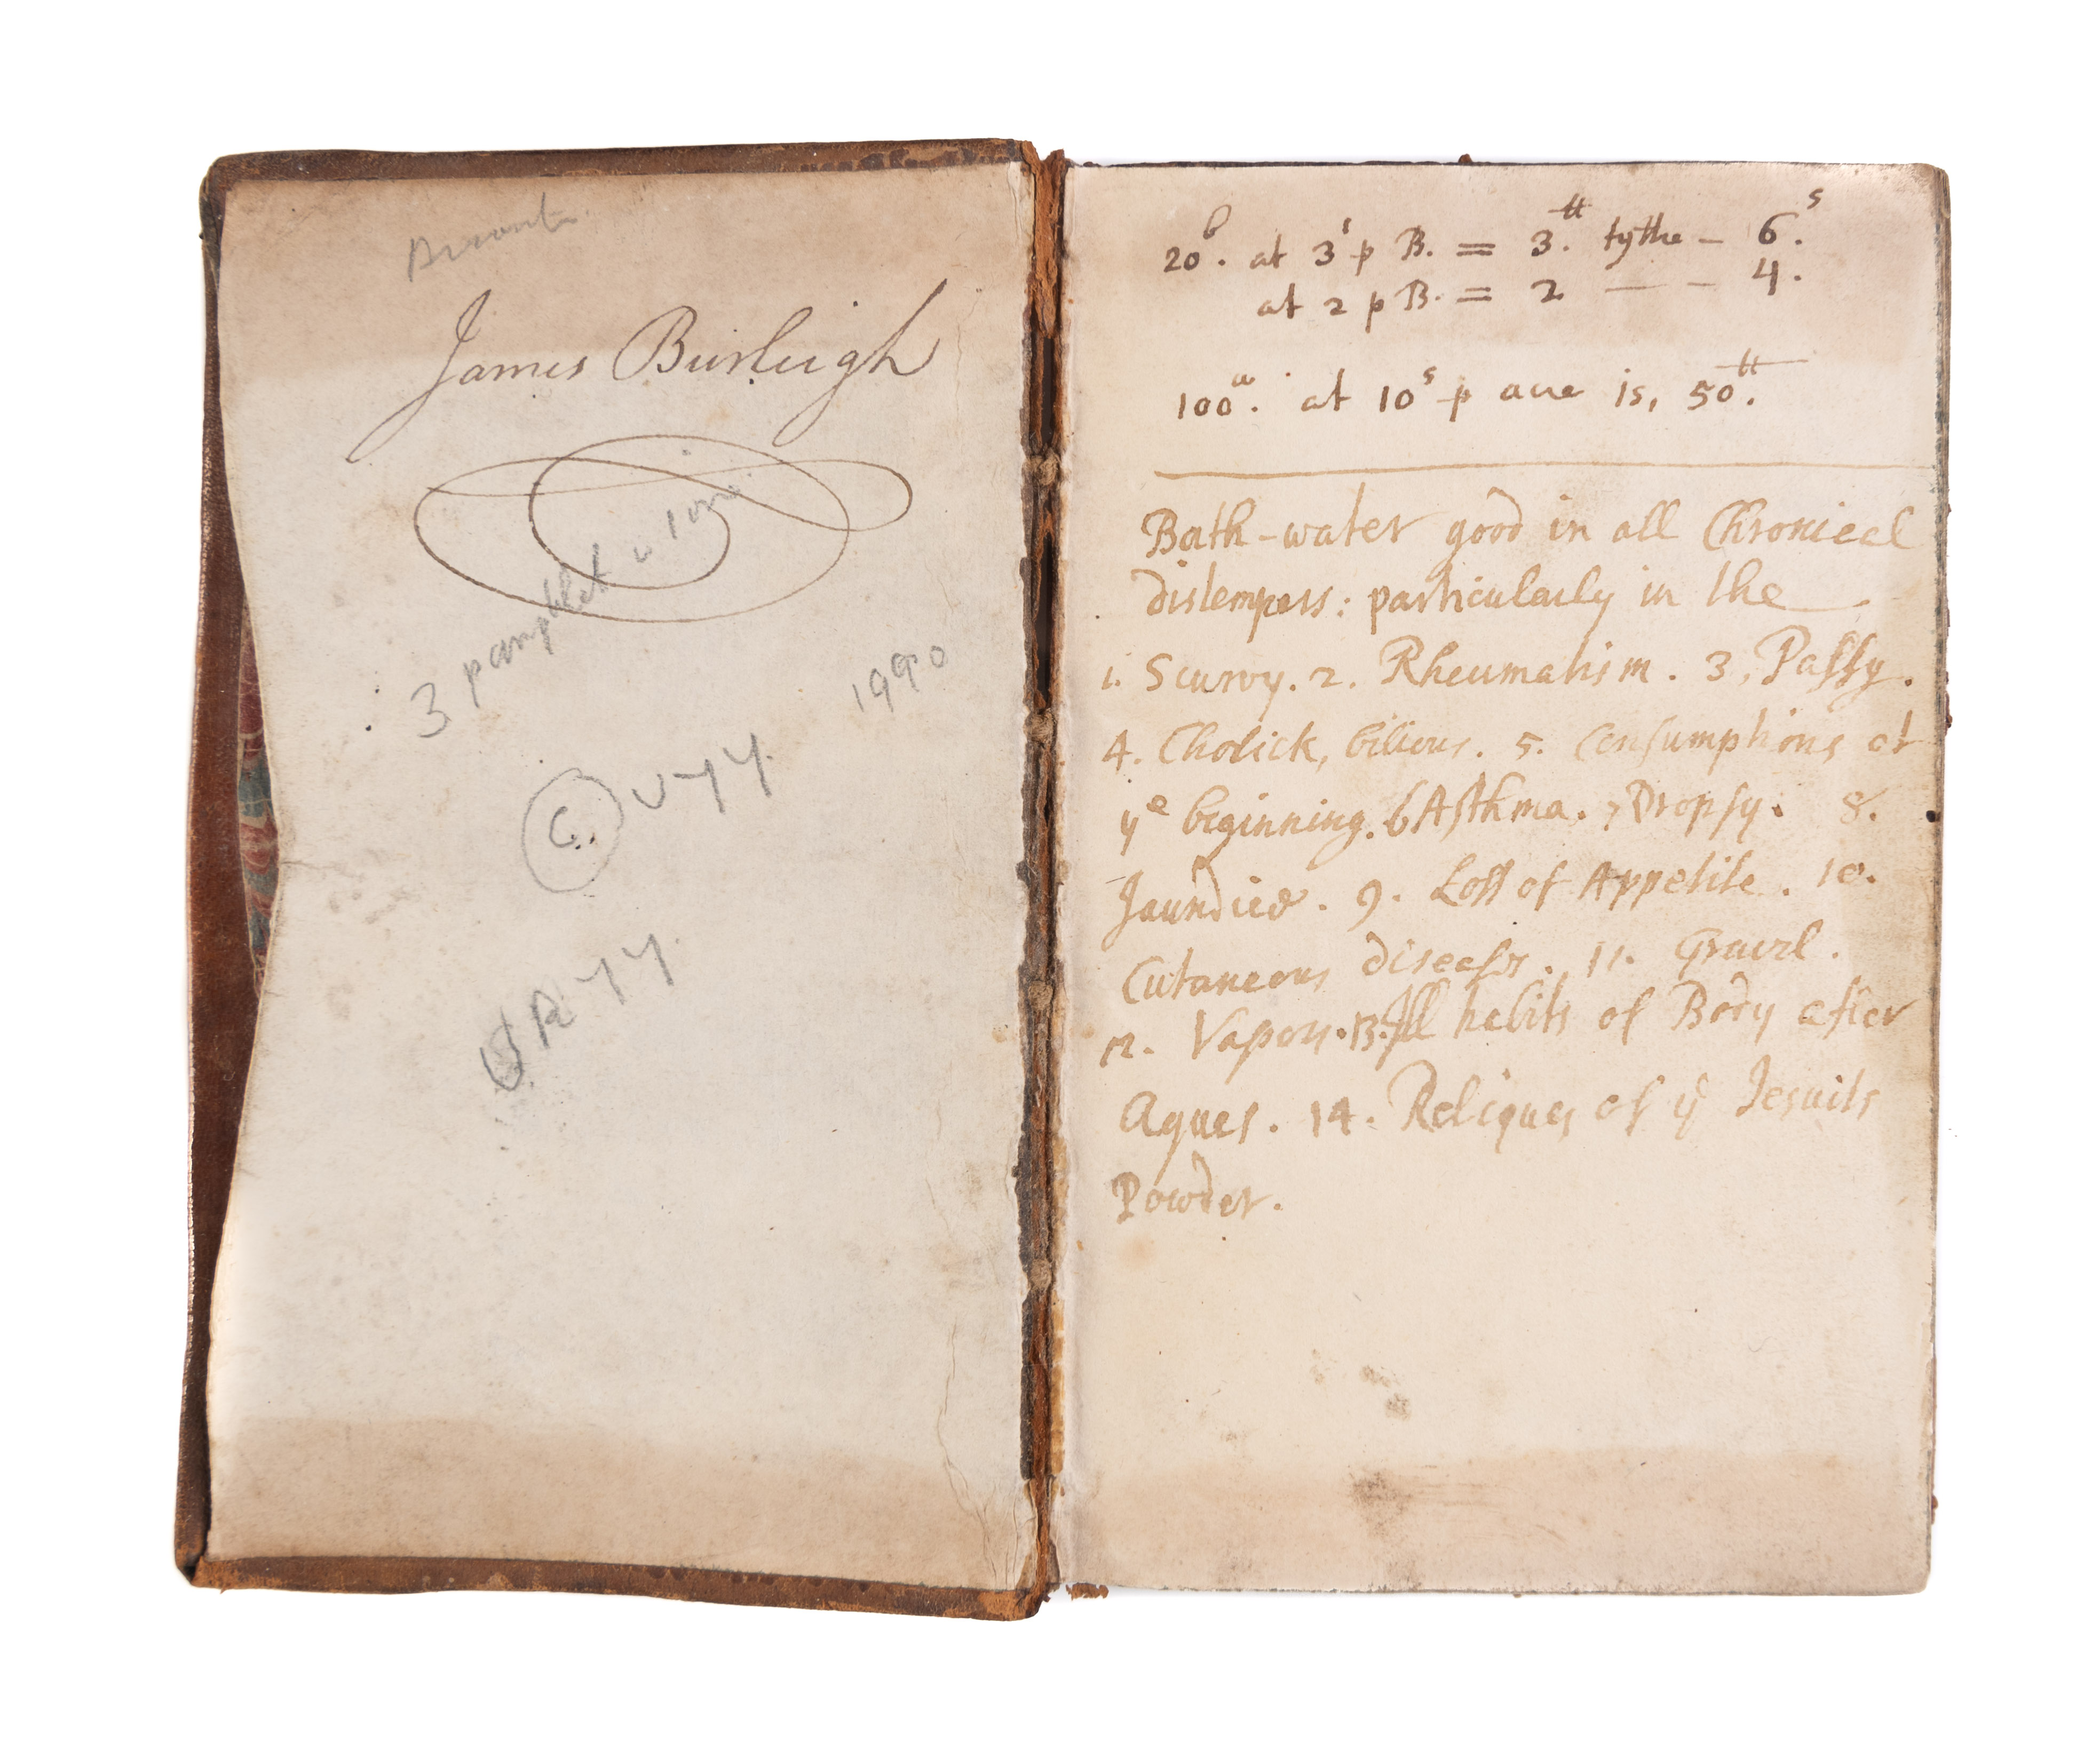 James Burleigh
3 pamphlets in 1 vol.
1990
C. U77.
UR77.
20b. at 3s p B. = 3.tt tythe – 6.s
at 2 p B. = 2 — – 4.
100a. at 10s p acre is, 50.tt
Bath-water good in all Chronical
distempers: particularly in the
1. Scurvy. 2. Rheumatism. 3, Palsy.
4. Cholick, bilious. 5. Consumptions at
ye beginning. 6 Asthma. 7 Dropsy. 8.
Jaundice. 9. Loss of Appetite. 10.
Cutaneous diseases. 11. Gravel.
12. Vapors. 13. Ill habits of Body after
Agues. 14. Reliques of ye Jesuits
Powder.